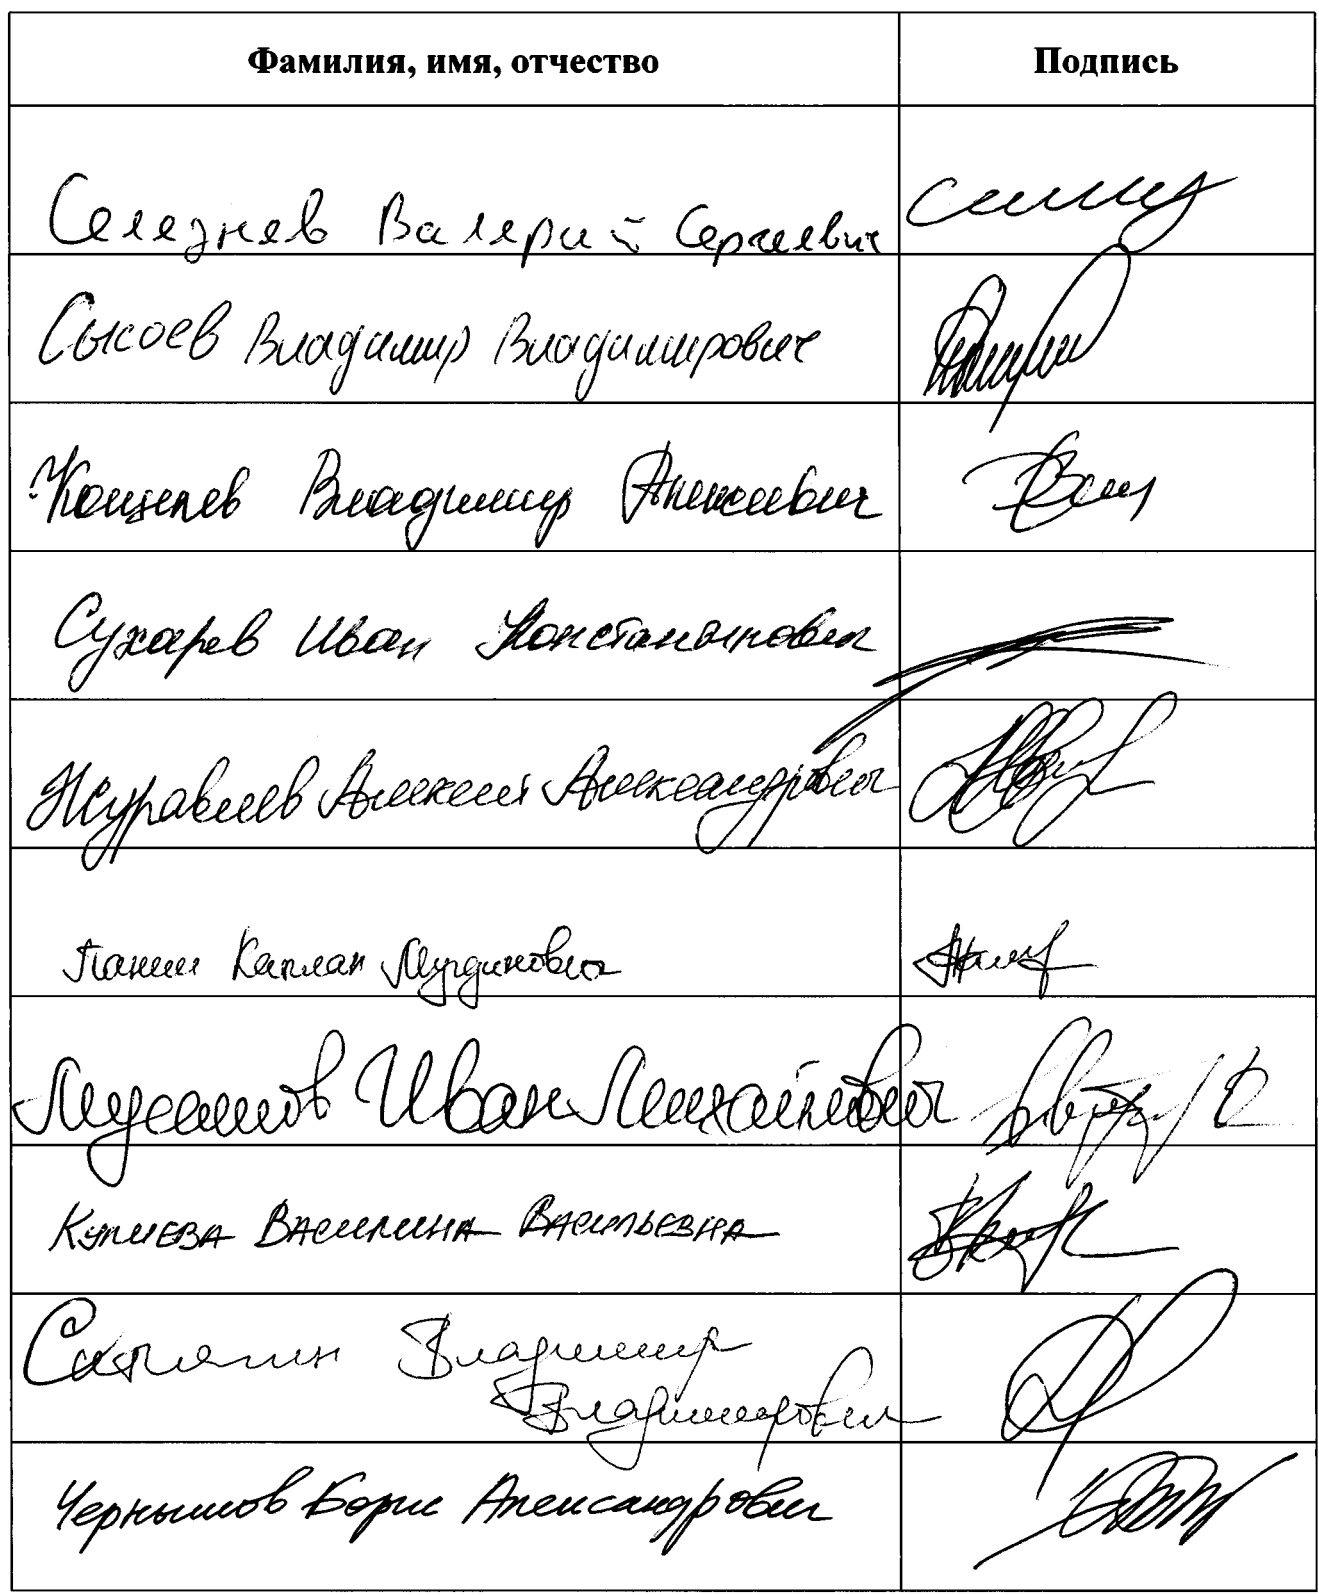 Фамилия, имя, отчество Подпись
Селезнев Валерий Сергеевич
Сысоев Владимир Владимирович
Кощелев Владимир Алексеевич
Сухарев Иван Константинович
Журавлев Алексей Александрович
Панеш Каплан Мугдинович
Мусатов Иван Михайлович
Кулиева Василина Васильевна
Сипягин Владимир
Владимирович
Чернышов Борис Александрович